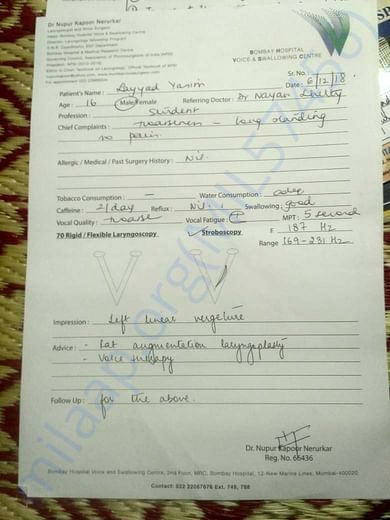 Dr Nupur Kapoor Nerurkar
Laryngologist and Voice Surgeon
Head, Bombay Hospital Voice and Swallowing Centre
Director, Laryngology Fellowship Program
BOMBAY HOSPITAL
VOICE & SWALLOWING CENTRE
Sr. No.
Date : 6/12/18
Patient's Name : Sayyad Yasim
Age : 16 Male/Female Referring Doctor : Dr Nayan Shetty
Profession : Student
Chief Complaints : Hoarseness - long standing
no pain.
Allergic / Medical / Past Surgery History : Nil.
Tobacco Consumption : — Water Consumption : adeq
Caffeine : 2/day Reflux : Nil. Swallowing : good
Vocal Quality : hoarse Vocal Fatigue : + MPT : 5 second
70 Rigid / Flexible Laryngoscopy Stroboscopy F 187 Hz
Range 169-231 Hz
Impression : Left linear vergeture
Advice : - Fat augmentation laryngoplasty
- Voice therapy
Follow Up : for the above.
Dr. Nupur Kapoor Nerurkar
Reg. No. 66436
Bombay Hospital Voice and Swallowing Centre, 2nd Floor, MRC, Bombay Hospital, 12-New Marine Lines, Mumbai-400020
Contact: 022 22067676 Ext. 749, 786